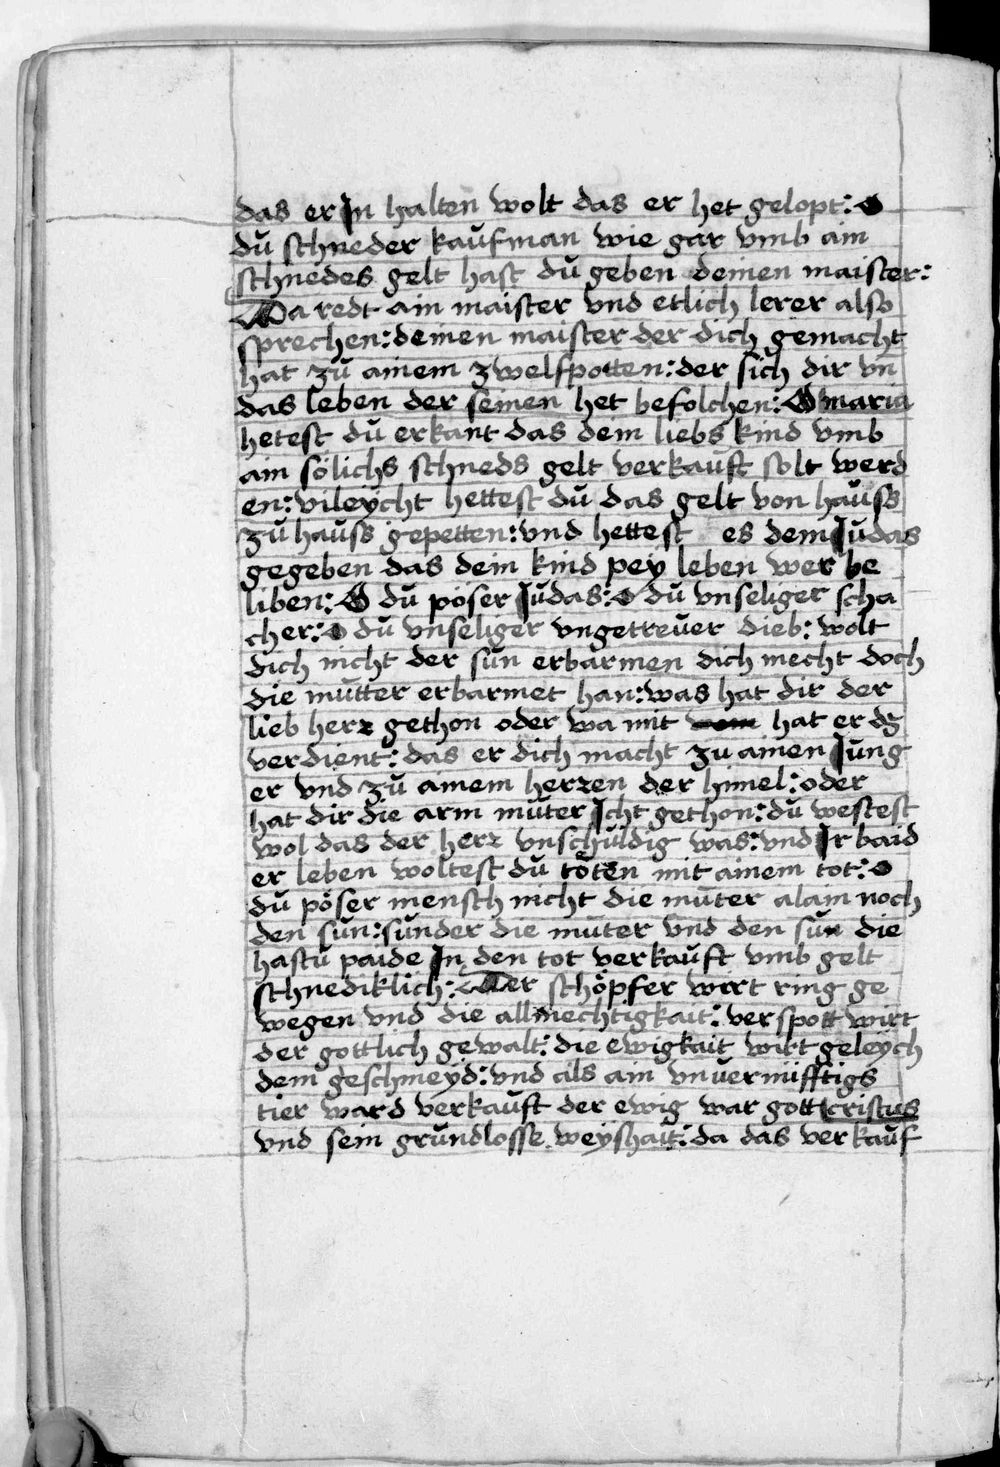 das er In halten wolt das er het gelopt: O
du schneder kaufman wie gar vmb ain
schnedes gelt hast du geben deinen maister:
Da redt ain maister vnd etlich lerer also
sprechen: deinen maister der dich gemacht
hat zu ainem zwelfpotten: der sich dir vn̄
das leben der seinen het befolchen: O maria
hetest du erkant das dem liebs kind vmb
ain sölichs schneds gelt verkauft solt werd
en: vileycht hettest du das gelt von hauss
zu hauss gepetten: vnd hettest es dem Judas
gegeben das dein kind pey leben wer be
liben: O du pöser Judas: O du vnseliger scha
cher: O du vnseliger vngetreuer dieb: wolt
dich nicht der sun erbarmen dich mecht doch
die mutter erbarmet han: was hat dir der
lieb herr gethon oder wa mit hat er dz
verdient: das er dich macht zu ainen Jung
er vnd zu ainem herzen der himel: oder
hat dir die arm muter Icht gethon: du westest
wol das der herr vnschuldig was: vnd Ir baid
er leben woltest du töten mit ainem tot: O
du pöser mensch nicht die muter alain noch
den sun: sunder die muter vnd den sun die
hastu paide In den tot verkauft vmb gelt
schnediklich: Der schöpfer wirt ring ge
wegen vnd die allmechtigkait: verspott wirt
der gottlich gewalt: die ewigkait wirt geleych
dem geschmeyd: vnd als ain vnuernüfftigs
tier ward verkauft der ewig war gott cristus
vnd sein grundlosse weyshait: da das verkauf